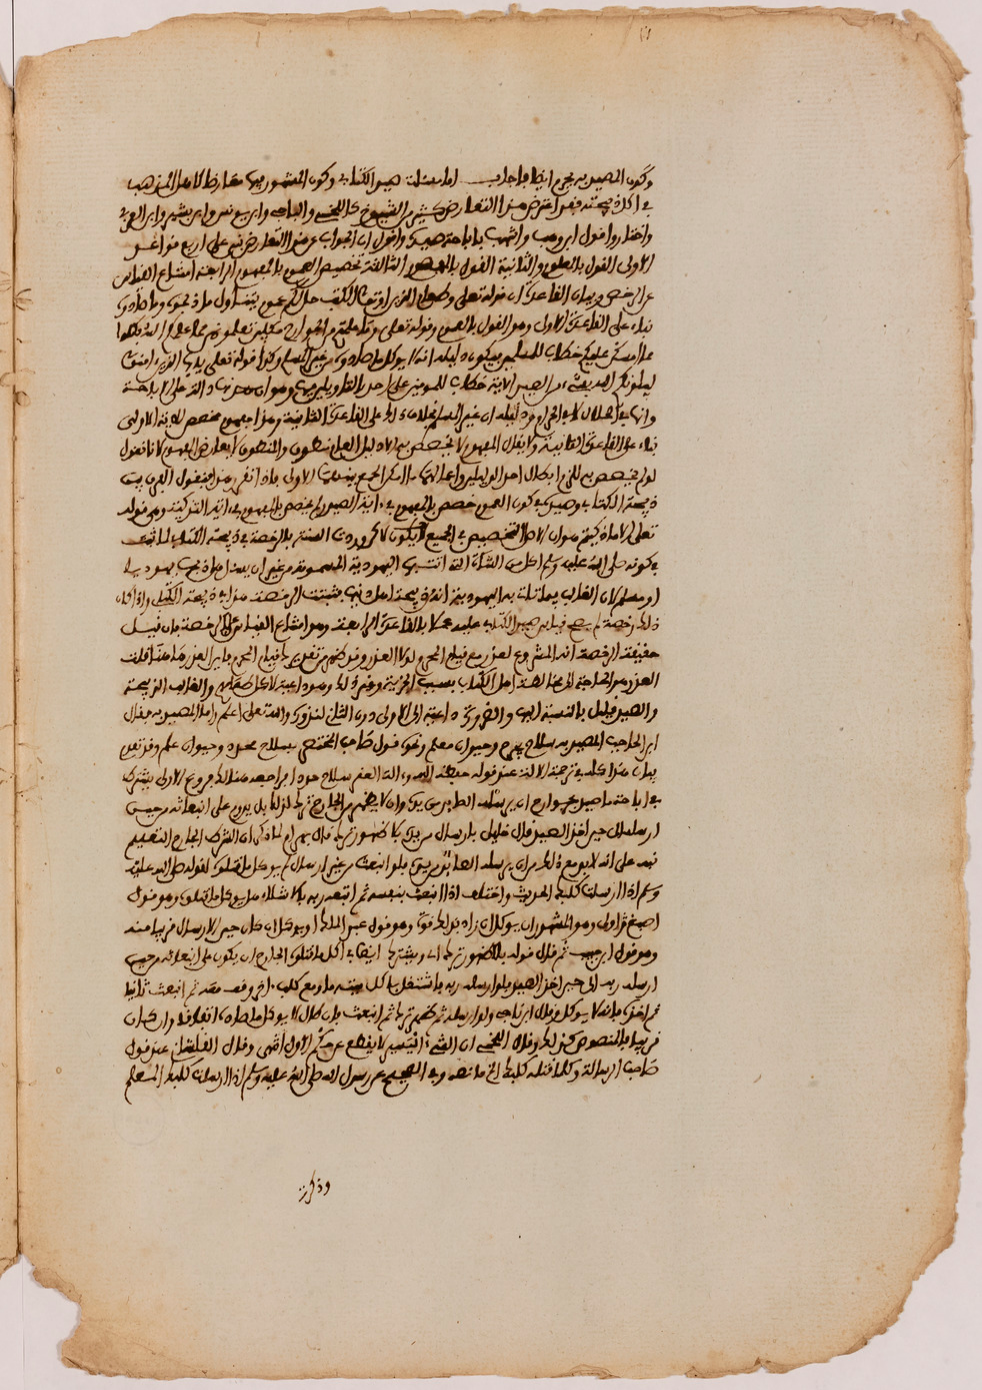 وكون المصيد به يحرم ايضا فاجاب اما مسئلة صيد الكتابي وكون المشهور فيها معارضا لاهل المذهب
في اكل ذبيحته فقد اعترض هذا التعارض كثير من الشيوخ كاللخمي والباجي وابن يونس وابن بشير وابن العربي
واختاروا قول ابن وهب واشهب باباحة صيده واقول ان الجواب عن هذا التعارض ينبني على اربع قواعد
الاولى القول بالعموم والثانية القول بالمفهوم الثالثة تخصيص العموم بالمفهوم الرابعة امتناع القياس
على الرخص وبيان القاعدة ان قوله تعلى وطعام الذين اوتوا الكتب حل لكم عموم يتناول ما ذبحوه وما صادوه
بناء على القاعدة الاولى وهو القول بالعموم وقوله تعلى وما علمتم من الجوارح مكلبين تعلمونهن مما علمكم الله فكلوا
مما امسكن عليكم خطاب للمسلمين فيكون دليله انه لا يوكل ما صاده غير المسلم وكذا قوله تعلى يايها الذين امنوا
ليبلونكم الله بشيء من الصيد الاية خطاب للمومنين على احد التاويلين فيها وهو ان دالة على الاباحة
وانها في الحلال لا في الحرام ودليله ان غير المسلم بخلاف ذلك على القاعدة الثانية وهذا مفهوم مخصص للاية الاولى
بناء على القاعدة الثالثة ولا يقال المفهوم لا يخصص به لان دليل العام منطوق والمنطوق لا يعارض المفهوم لانا نقول
لو لم يخصص به للزم ابطال احد الدليلين واعمالهما ما امكن الجمع بينهما الاولى فاذا تقرر هذا فنقول الفرق بين
ذبيحة الكتابي وصيده كون العموم خصص بالمفهوم في اية الصيد ولم يخصص بالمفهوم في اية التذكية وهي قوله
تعلى الا ما ذكيتم هو ان الاصل التخصيص في الجميع لكون لاكن وردت السنة بالرخصة في ذبيحة الكتابي لما ثبت
في كونه صلى الله عليه وسلم اكل من الشاة التي اتت بها اليهودية المسمومة من غير ان يسئل هل ذبحها يهودي
او مسلم لان الغالب فيما تات به اليهود بخيبر انه ذبيحة اهل دينها فثبتت الرخصة هذا في ذبيحة الكتابي واذا كان
ذلك رخصة لم يصح قياس صيد الكتابي عليه عملا بالقاعدة الرابعة وهو امتناع القياس على الرخصة فان قيل
حقيقة الرخصة انه المشروع لعذر مع قيام المحرم لولا العذر وقد ظهر من تقريركم قيام المحرم فاين العذر هاهنا قلت
العذر هو الحاجة الى مخالطة اهل الكتاب بسبب الجزية وغير ذلك وهو داعية لاكل طعامهم والغالب الذبيحة
والصيد قليل بالنسبة اليها والضرورة داعية الى الاولى دون الثاني لندوره والله تعلى اعلم واما المصيد به فقال
ابن الحاجب المصيد به سلاح يجرح وحيوان معلم ونحوه قول صاحب المختصر بسلاح محدد وحيوان علم وقد تقدم
بيان هذا كله في ترجمة الالة عند قوله حفظه الله والة العقر سلاح حد فراجعه هنالك فروع الاولى يشترط
في اباحة ما صيد بجوارح ان يرسله الصائد من يده وان لا يظهر من الجارح ترك لذلك بل يدوم على انبعاثه من حين
ارساله الى حين اخذ الصيد قال خليل بارسال من يده بلا ظهور ترك قال بهرام لما ذكر ان الشرط الجارح التعليم
نبه على انه لا بد مع ذلك من ان يرسله الصائد من يده فلو انبعث من غير ارسال لم يوكل ما قتله لقوله صلى الله عليه
وسلم اذا ارسلت كلبك الحديث واختلف اذا انبعث بنفسه ثم اتبعه ربه بالاشلاء هل يوكل ما قتله وهو قول
اصبغ او لا وهو المشهور ان يوكل ان زاده ذلك قوة وهو قول عبد الملك او يوكل ان كان حين الارسال قريبا منه
وهو قول ابن حبيب ثم قال قوله بلا ظهور ترك اي ويشترط ايضا في اكل ما قتله الجارح ان يكون على انبعاثه من حين
ارسله ربه الى حين اخذ الصيد فلو ارسله ربه فاشتغل باكل ميتة او مع كلب اخر وقف معه ثم انبعث ثانيا
ثم اخذه فانه لا يوكل وقال ابن ناجي ولو ارسله ثم ظهر ترك ثم انبعث فان طال لا يوكل ما صاده اتفاقا وان كان
قريبا فالمنصوص كذلك وقال اللخمي ان الشيء اليسير لا يقطع عن حكم الاول انتهى وقال القلشاني عند قول
صاحب الرسالة وكل ما قتله كلبك الخ ما نصه وفي الصحيح عن رسول الله صلى الله عليه وسلم اذا ارسلت كلبك المعلم
وذكرت